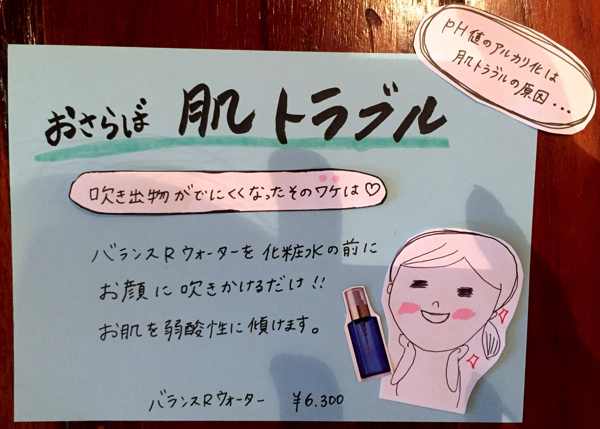 pH値のアルカリ化は
肌トラブルの原因...
おさらば 肌トラブル
吹き出物がでにくくなったそのワケは♡
バランスRウォーターを化粧水の前に
お顔に吹きかけるだけ!!
お肌を弱酸性に傾けます。
バランスRウォーター ¥6.300